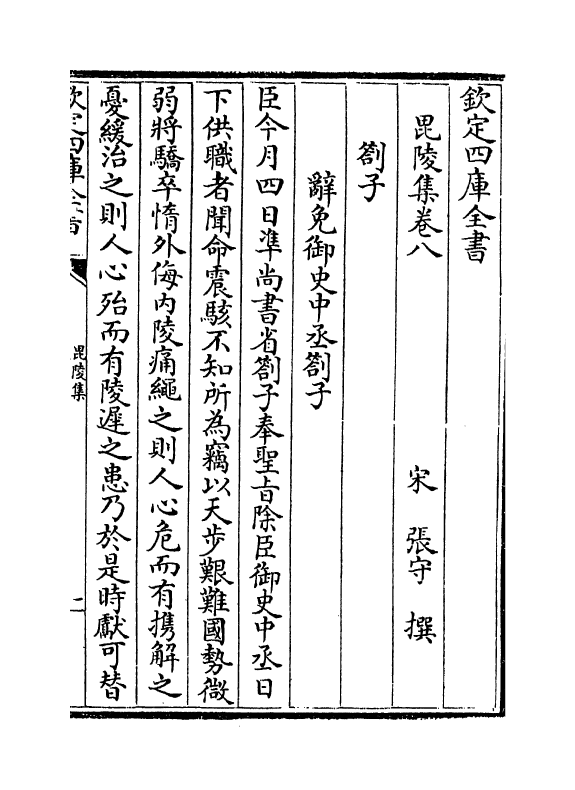 欽定四庫全書
毘陵集卷八
宋 張守 撰
劄子
辭免御史中丞劄子
臣今月四日準尚書省劄子奉聖旨除臣御史中丞日
下供職者聞命震駭不知所為竊以天步艱難國勢微
弱將驕卒惰外侮内陵痛繩之則人心危而有攜解之
憂緩治之則人心殆而有陵遲之患乃於是時獻可替
欽定四庫全書
毘陵集